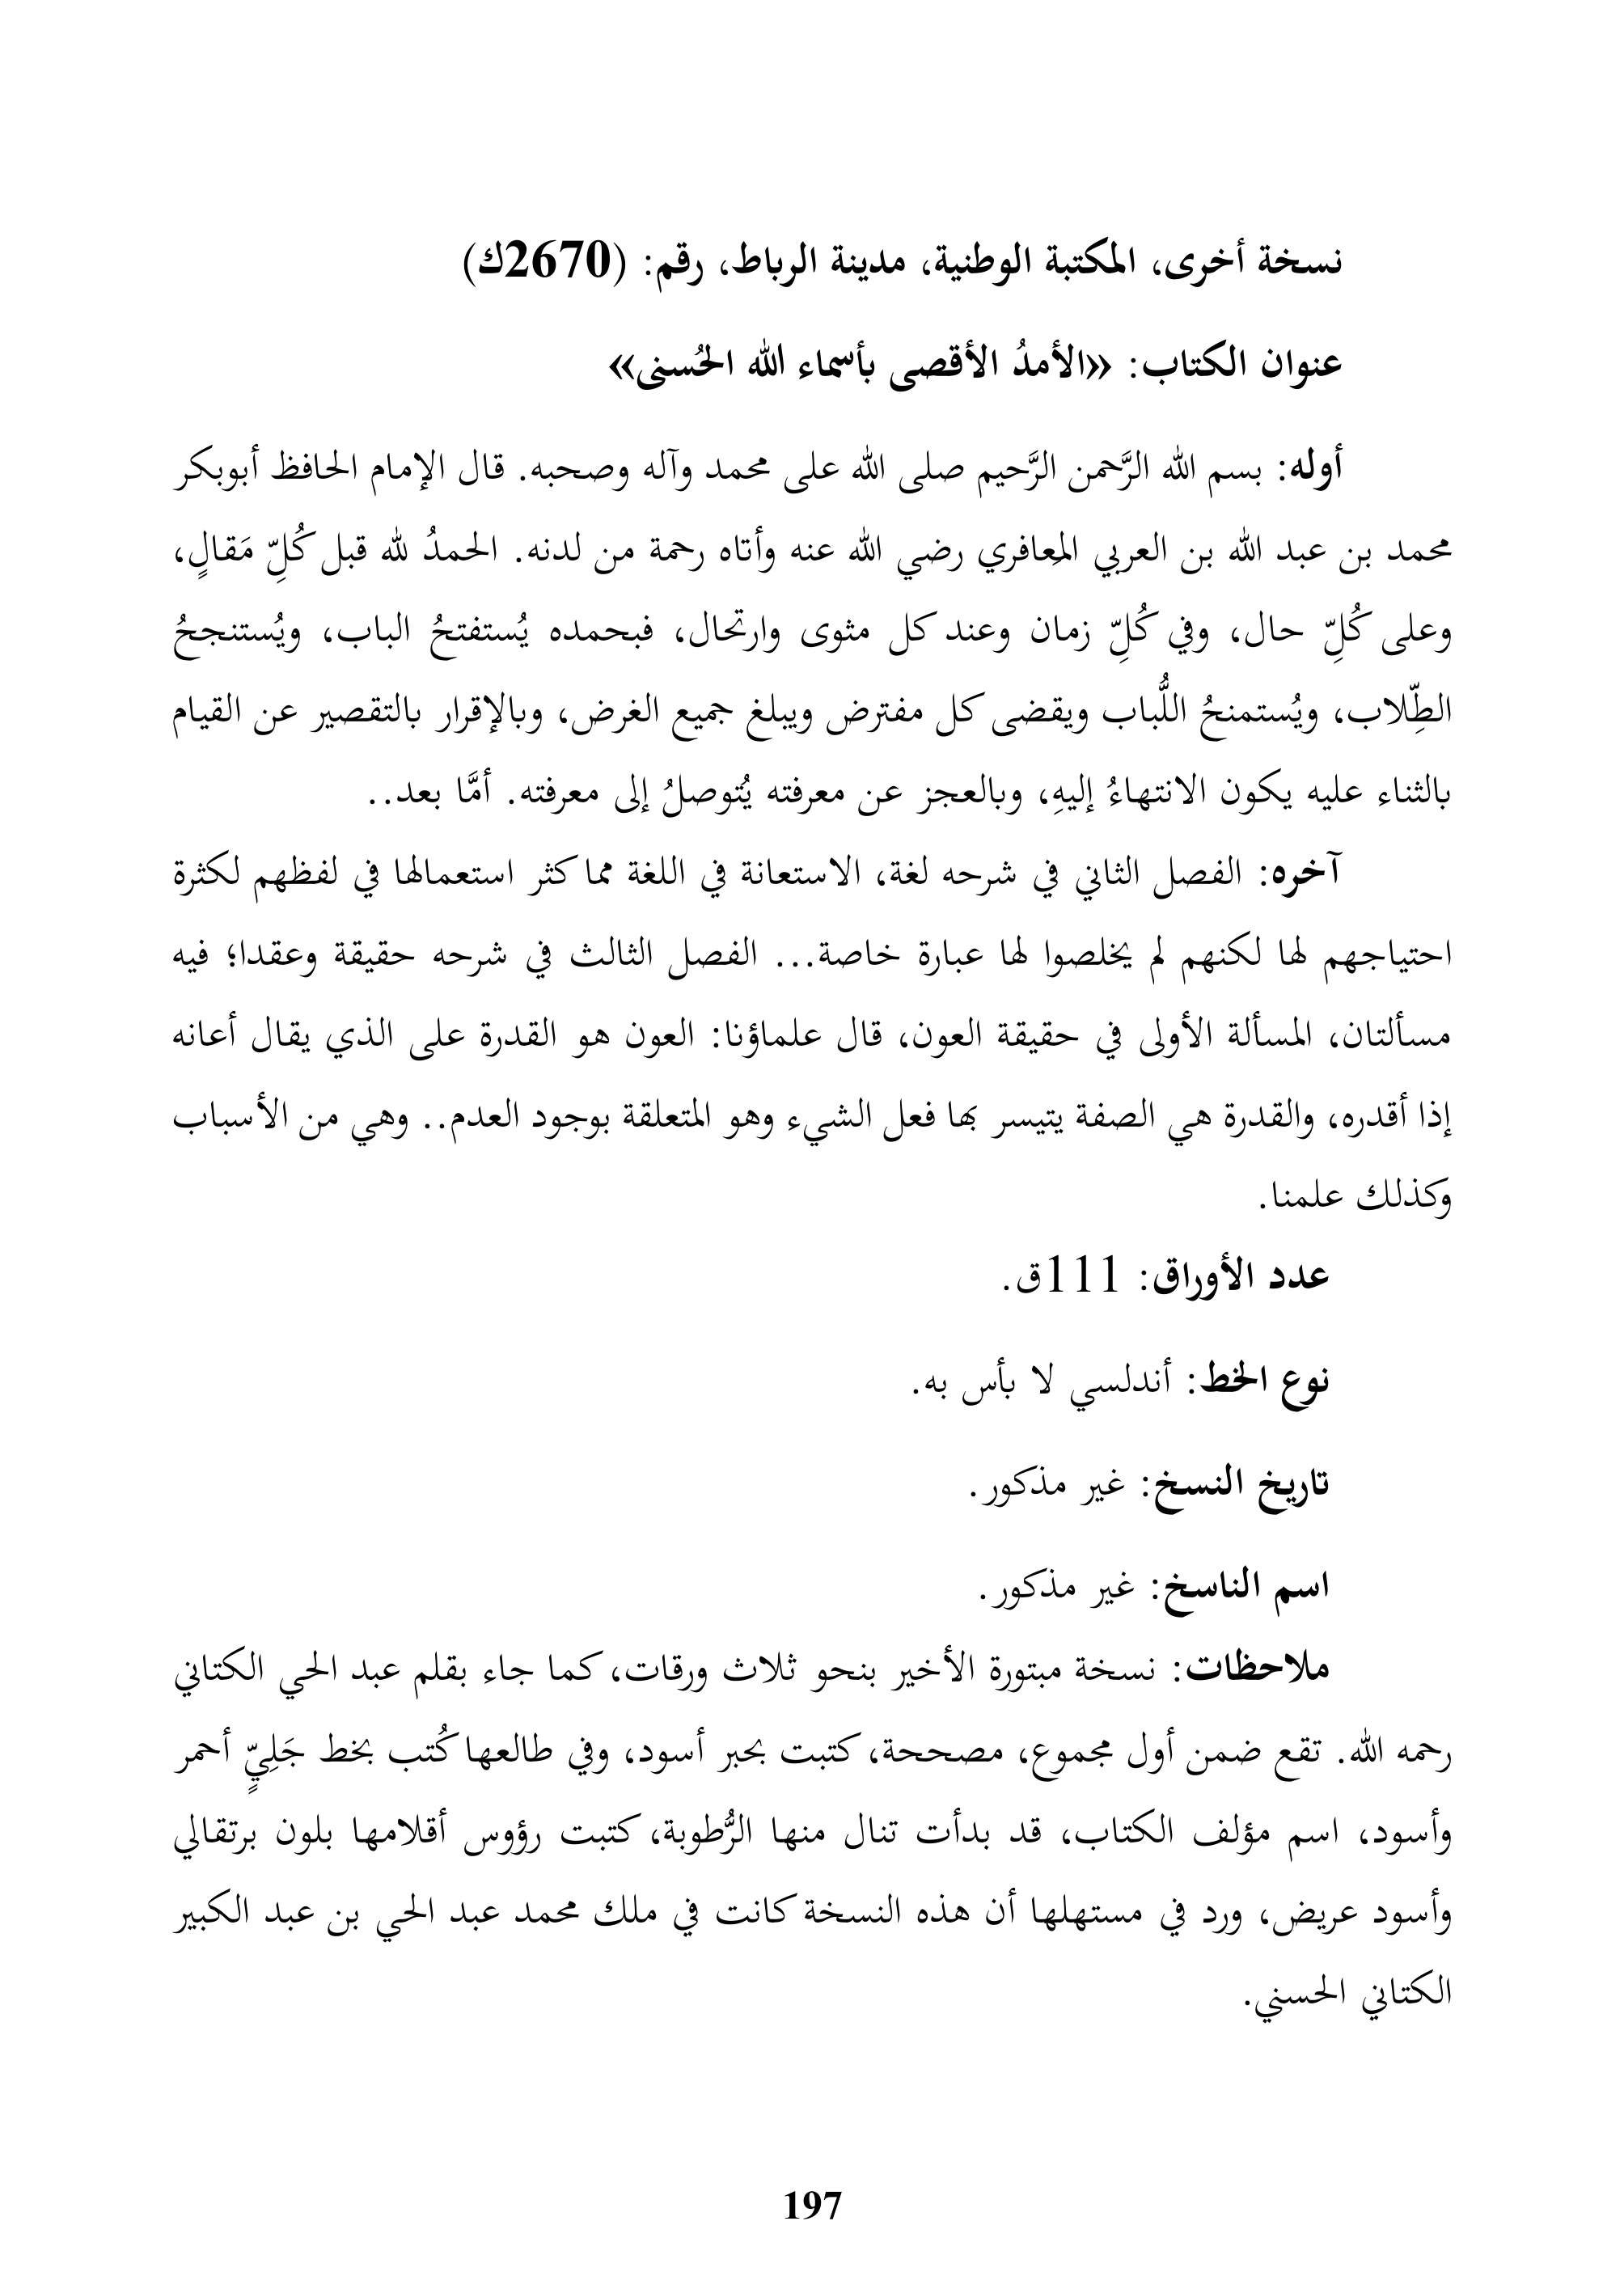 نسخة أخرى، المكتبة الوطنية، مدينة الرباط، رقم: (2670ك)
عنوان الكتاب: «الأمدُ الأقصى بأسماء الله الحُسنى»
أوله: بسم الله الرَّحمن الرَّحيم صلى الله على محمد وآله وصحبه. قال الإمام الحافظ أبوبكر
محمد بن عبد الله بن العربي المِعافري رضي الله عنه وأتاه رحمة من لدنه. الحمدُ لله قبل كُلِّ مَقالٍ،
وعلى كُلِّ حال، وفي كُلِّ زمان وعند كل مثوى وارتحال، فبحمده يُستفتحُ الباب، ويُستنجحُ
الطِّلاب، ويُستمنحُ اللُّباب ويقضى كل مفترض ويبلغ جميع الغرض، وبالإقرار بالتقصير عن القيام
بالثناء عليه يكون الانتهاءُ إليهِ، وبالعجز عن معرفته يُتوصلُ إلى معرفته. أمَّا بعد..
آخره: الفصل الثاني في شرحه لغة، الاستعانة في اللغة مما كثر استعمالها في لفظهم لكثرة
احتياجهم لها لكنهم لم يخلصوا لها عبارة خاصة... الفصل الثالث في شرحه حقيقة وعقدا؛ فيه
مسألتان، المسألة الأولى في حقيقة العون، قال علماؤنا: العون هو القدرة على الذي يقال أعانه
إذا أقدره، والقدرة هي الصفة يتيسر بها فعل الشيء وهو المتعلقة بوجود العدم.. وهي من الأسباب
وكذلك علمنا.
عدد الأوراق: 111ق.
نوع الخط: أندلسي لا بأس به.
تاريخ النسخ: غير مذكور.
اسم الناسخ: غير مذكور.
ملاحظات: نسخة مبتورة الأخير بنحو ثلاث ورقات، كما جاء بقلم عبد الحي الكتاني
رحمه الله. تقع ضمن أول مجموع، مصححة، كتبت بحبر أسود، وفي طالعها كُتب بخط جَلِيٍّ أحمر
وأسود، اسم مؤلف الكتاب، قد بدأت تنال منها الرُّطوبة، كتبت رؤوس أقلامها بلون برتقالي
وأسود عريض، ورد في مستهلها أن هذه النسخة كانت في ملك محمد عبد الحي بن عبد الكبير
الكتاني الحسني.
197